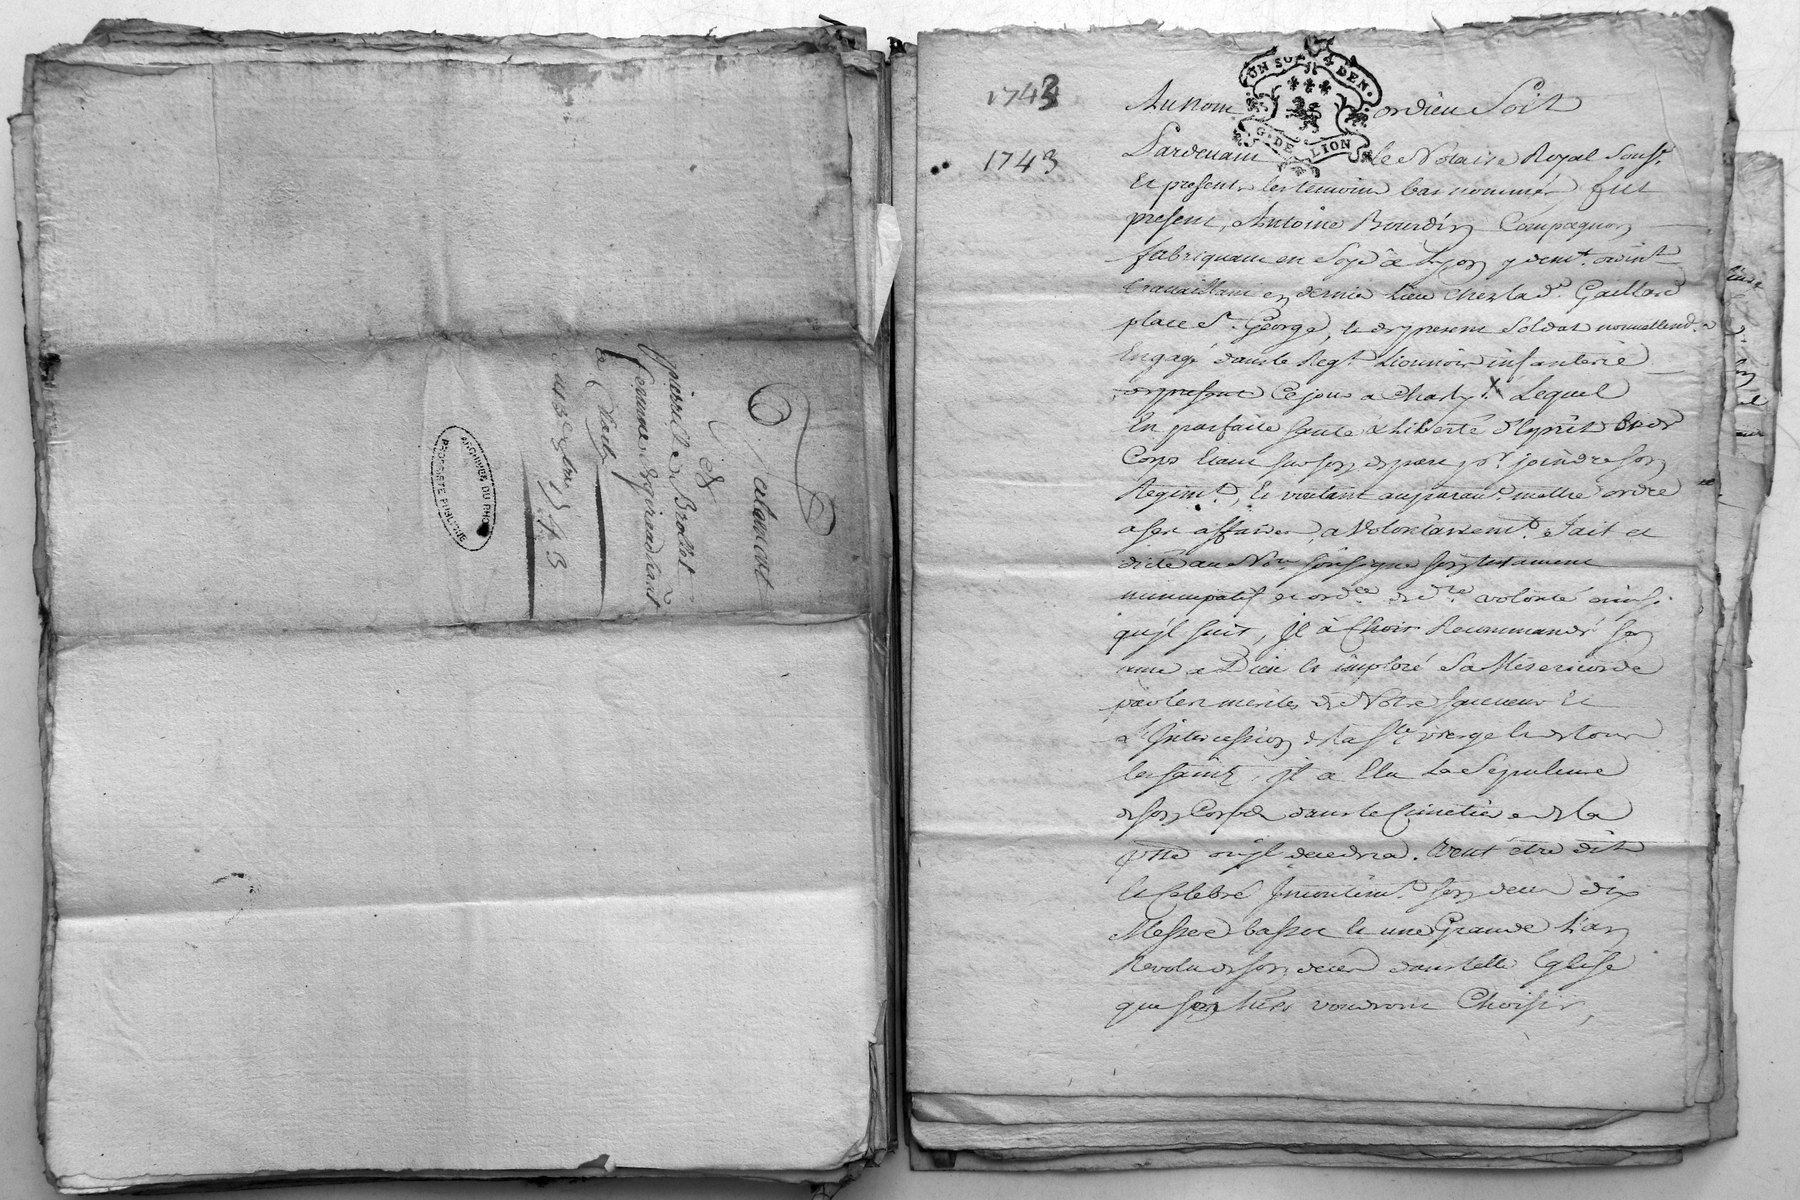 Testament
de
pierrette Brollet
femme de girard
de Charly
du 13e 7bre 1743
ARCHIVES DU RHONE
PROPRIETE PUBLIQUE
1743
1743
UN SOL 4 DEN.
G. DE LION
Au nom de dieu Soit
Pardevant le Notaire Royal Souss.
Et presents les temoins bas nommés fut
present, Antoine Bourdin Compagnon
fabriquant en Soye à Lyon y demt.
travaillant en dernier Lieu chez la de. Gaillard
place St. George, et dypresent Soldat nouvellemt.
Engagé dans le Regt Lionnois infanterie
dypresent Ce jour a Charly X Lequel
En parfaite Santé & Liberté d'Esprit & de
Corps Etant sur son depart pr. joindre son
Regimt., Et voulant auparavt. mettre ordre
a ses affaires, a volontairemt. fait et
dicté au Nre. soussigné son testament
nuncupatif et ordce. de dre. volonté ainsi
qu'jl suit, Jl à Recommandé son
ame a Dieu Et imploré Sa Misericorde
par les merites de Notre Sauveur Et
L'Intercession de la Ste. vierge et de tous
les saints, jl a Elu La Sepulture
de son Corps dans le Cimetière de la
psse ou jl decedra. Veut être dit
Et Celebré son deces dix
Messes basses Et une Grande L'an
Revolu de son deces dans telle Eglise
que son heritier voudront Choisir,